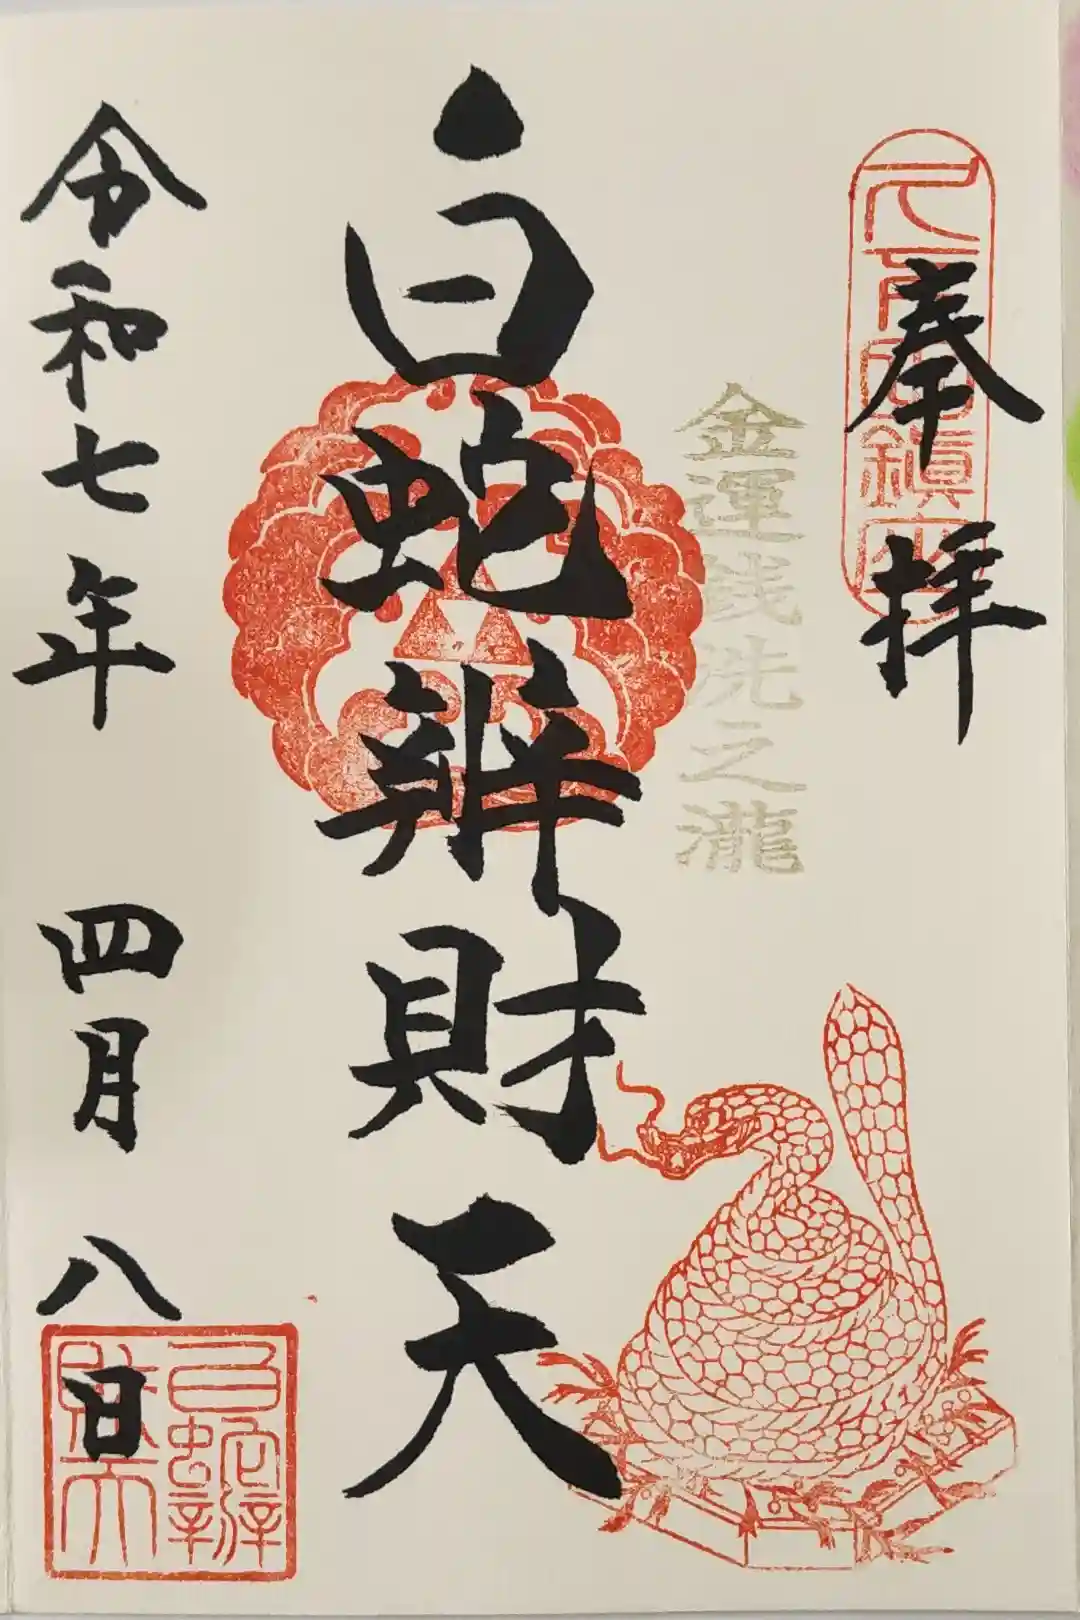 奉拝
金運銭洗之瀧
白蛇辨財天
令和七年 四月 八日
白蛇辨財天